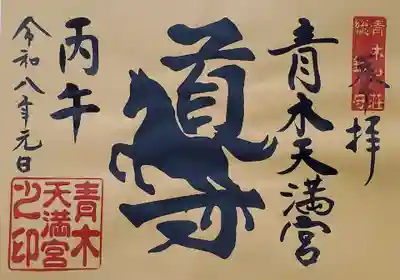 奉拝
青木天満宮
導
丙午
令和八年元日
青木
天満宮
之印